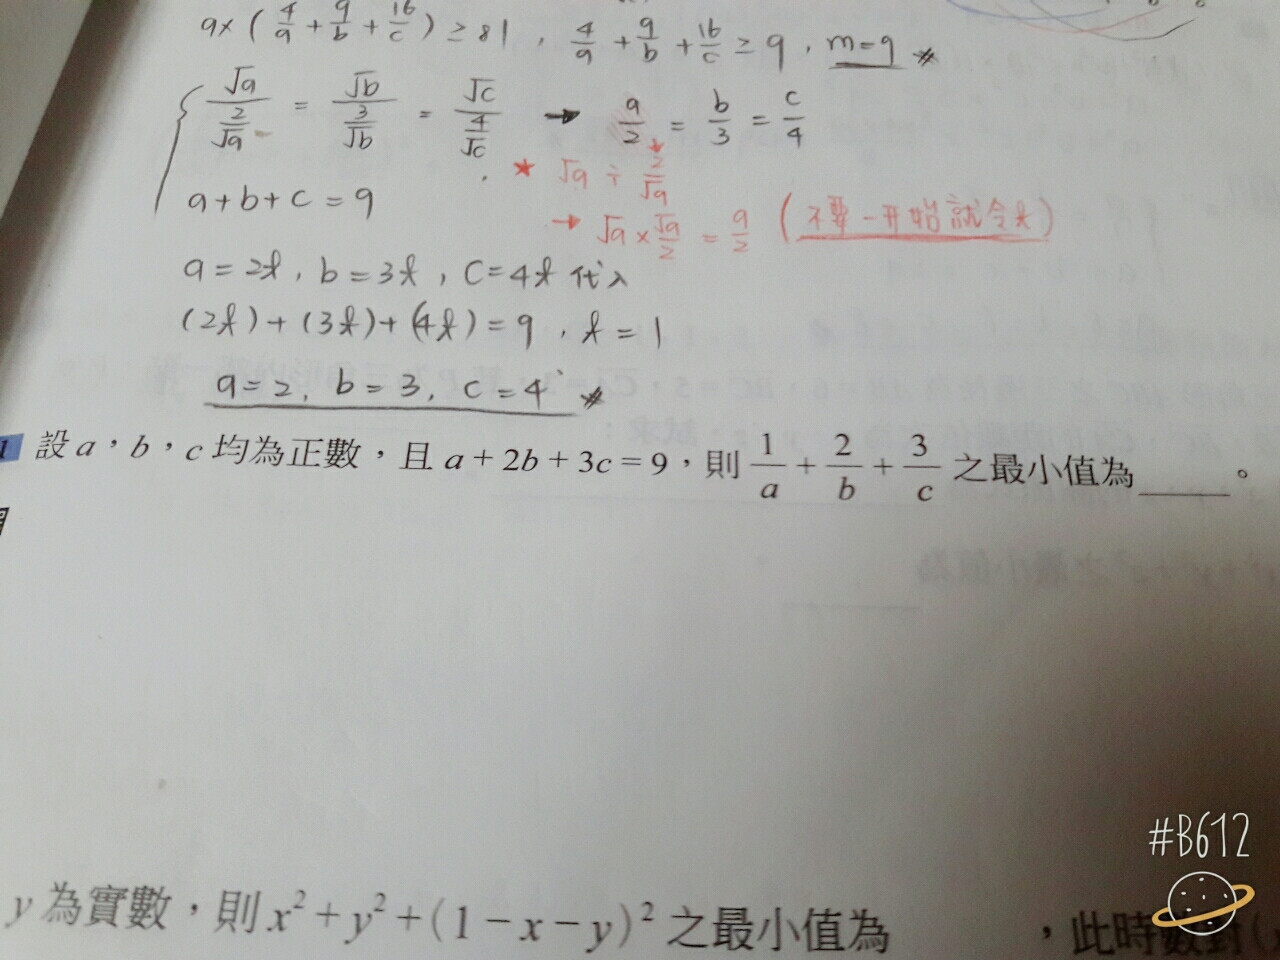 9×(4/a + 9/b + 16/c) ≥ 81 , 4/a + 9/b + 16/c ≥ 9 , m=9
√a/(2/√a) = √b/(3/√b) = √c/(4/√c) → a/2 = b/3 = c/4
★ √a ÷ 2/√a
a+b+c = 9
→ √a × √a/2 = a/2 (不要一開始就令k)
a=2k , b=3k , c=4k 代入
(2k)+(3k)+(4k)=9 , k=1
a=2, b=3, c=4
1 設 a,b,c 均為正數,且 a+2b+3c=9,則 1/a + 2/b + 3/c 之最小值為____。
y 為實數,則 x²+y²+(1-x-y)² 之最小值為 ,此時數對(
#B612